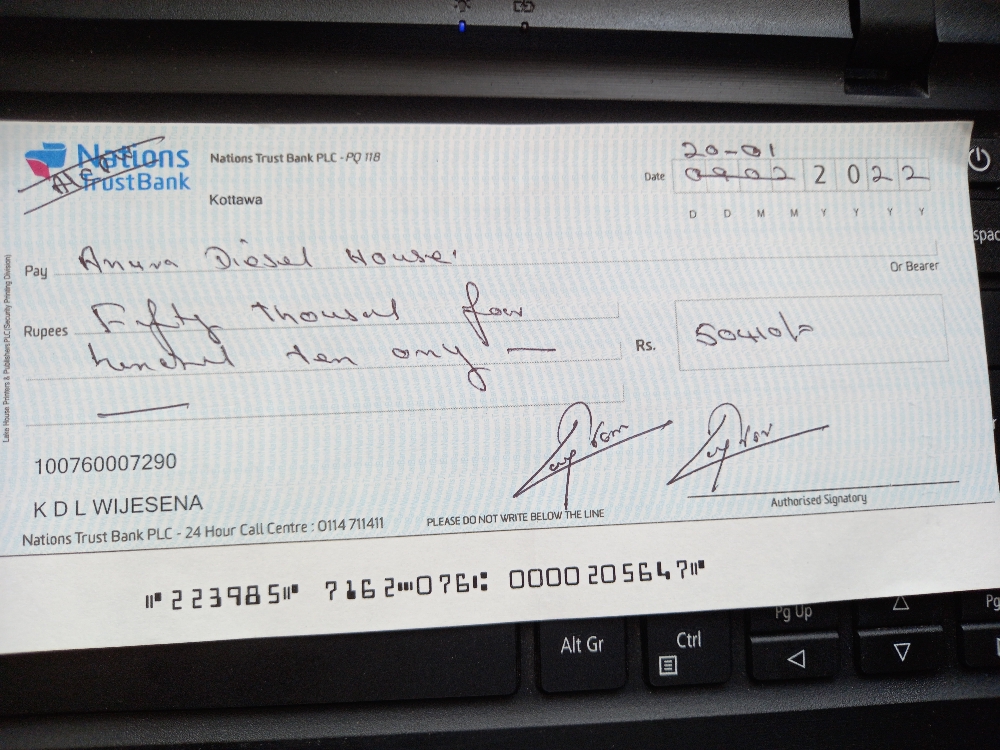 Nations
TrustBank
A/C Payee
Nations Trust Bank PLC - PQ 118
Kottawa
20-01
Date 0902 2022
D D M M Y Y Y Y
Pay Anura Diesel House.
Or Bearer
Rupees Fifty thousad four
hundred ten only —
Rs. 50410/=
Lake House Printers & Publishers PLC (Security Printing Division)
100760007290
K D L WIJESENA
Authorised Signatory
Nations Trust Bank PLC - 24 Hour Call Centre : 0114 711411
PLEASE DO NOT WRITE BELOW THE LINE
⑈223985⑈ 7162⑉076⑆ 0000205647⑈
Alt Gr
Ctrl
Pg Up